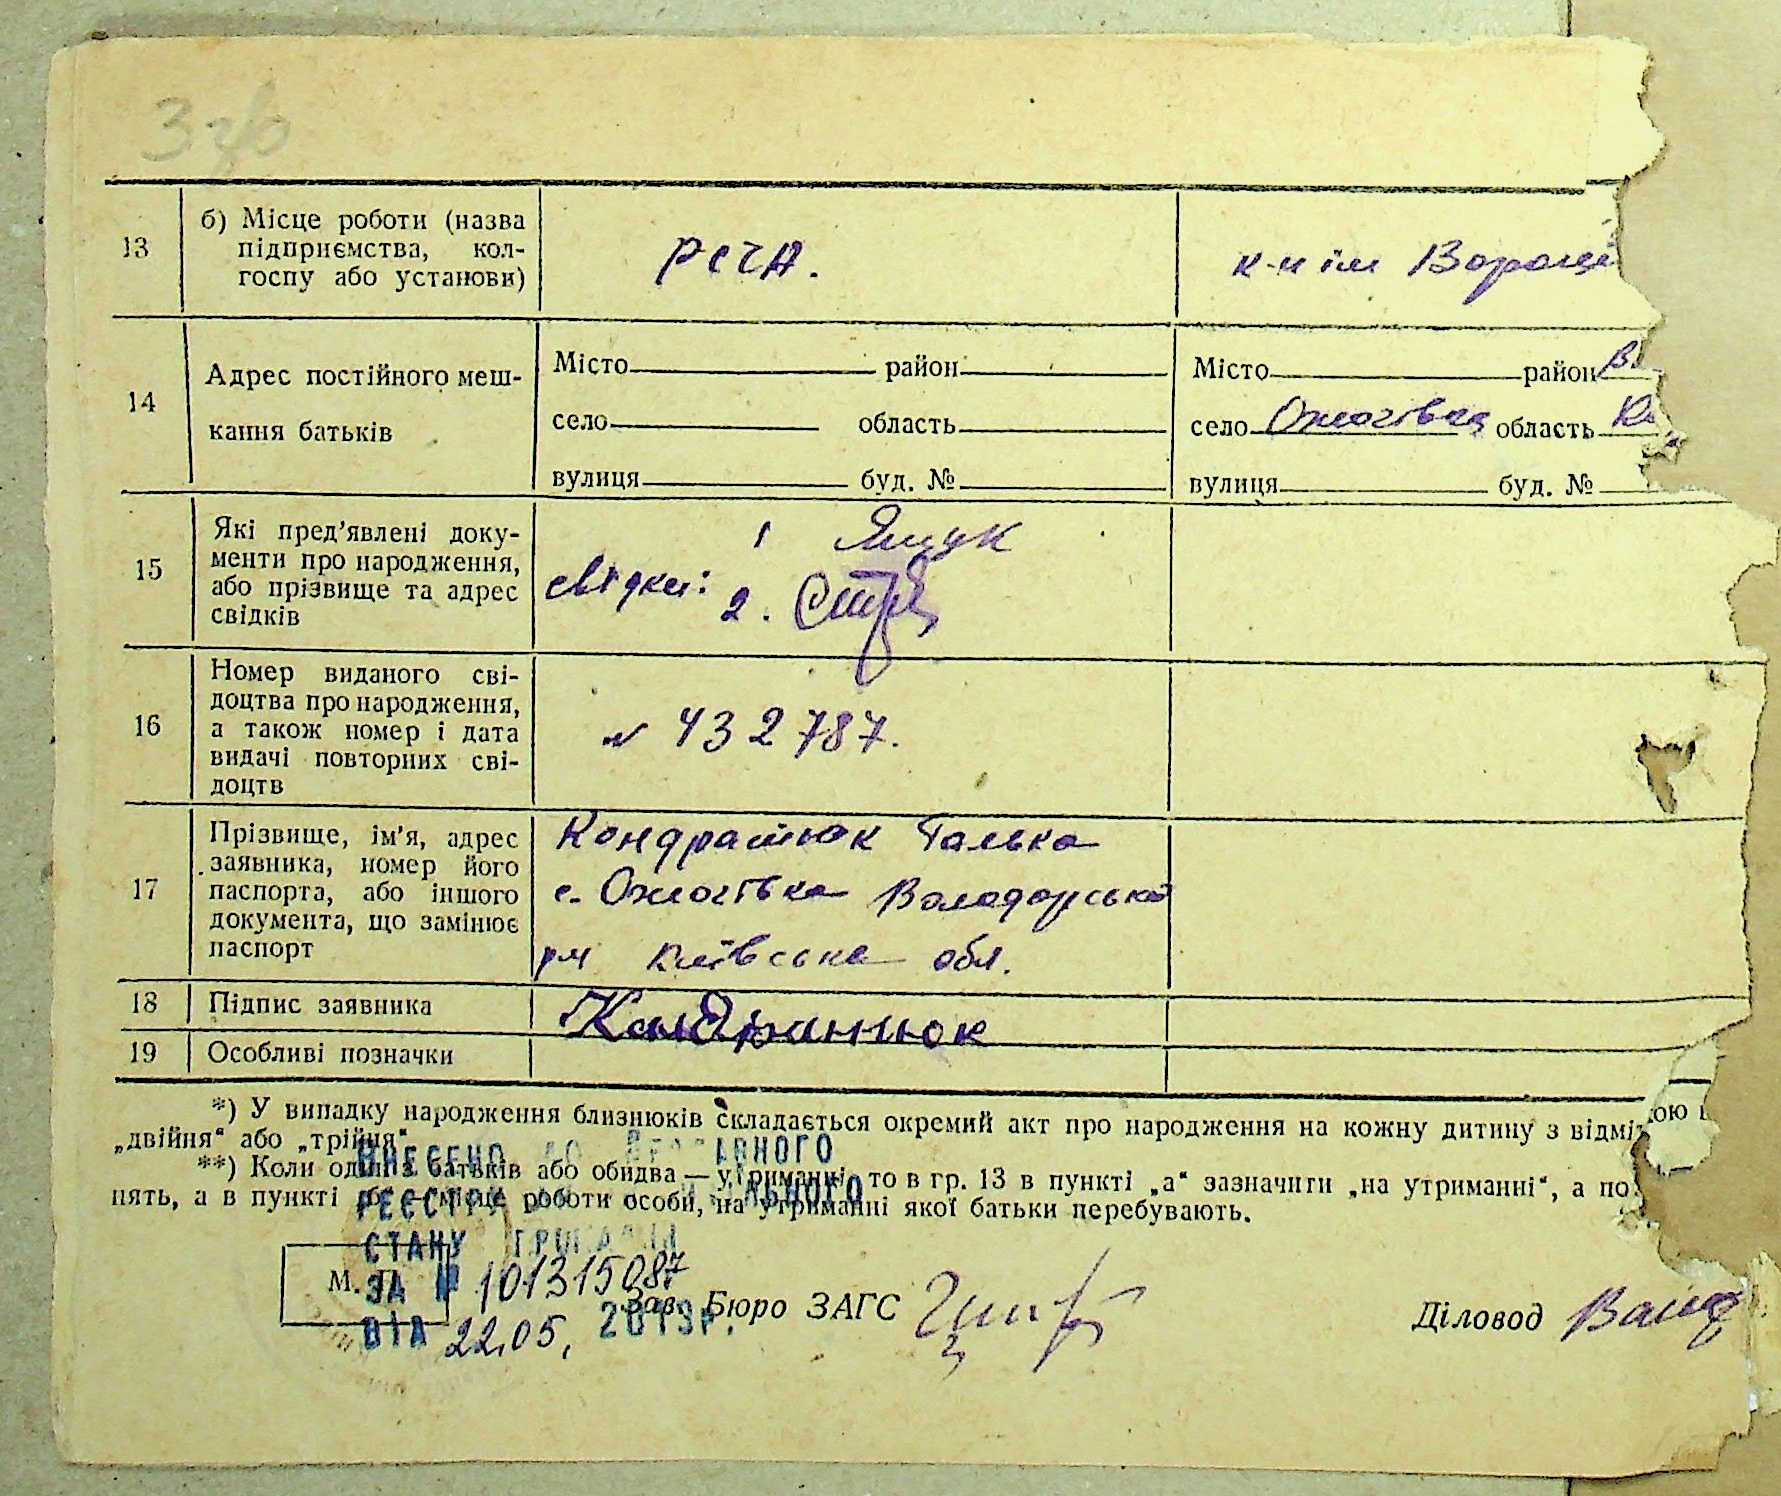 13 б) Місце роботи (назва
підприємства, кол-
госпу або установи)
РСЧА.
к-п ім Вороші
14 Адрес постійного меш-
кання батьків
Місто район
село область
вулиця буд. №
Місто район
село Ожогівка область
вулиця буд. №
15 Які пред’явлені доку-
менти про народження,
або прізвище та адрес
свідків
свідки: 1 Ящук
2.
16 Номер виданого сві-
доцтва про народження,
а також номер і дата
видачі повторних сві-
доцтв
№ 432787.
17 Прізвище, ім’я, адрес
заявника, номер його
паспорта, або іншого
документа, що замінює
паспорт
Кондратюк Галька
с. Ожогівка Володарський
р-н Київська обл.
18 Підпис заявника
Кондратюк
19 Особливі позначки
*) У випадку народження близнюків складається окремий акт про народження на кожну дитину з відміт кою
„двійня“ або „трійня“
**) Коли один з батьків або обидва — утриманці, то в гр. 13 в пункті „а“ зазначити „на утриманні“, а по
нять, а в пункті „б“ — місце роботи особи, на утриманні якої батьки перебувають.
ВНЕСЕНО ДО ДЕРЖАВНОГО
РЕЄСТРУ
СТАНУ ГРОМАДЯН
ЗА № 101315087
ВІД 22.05. 2013р.
М. П.
Зав. Бюро ЗАГС
Діловод